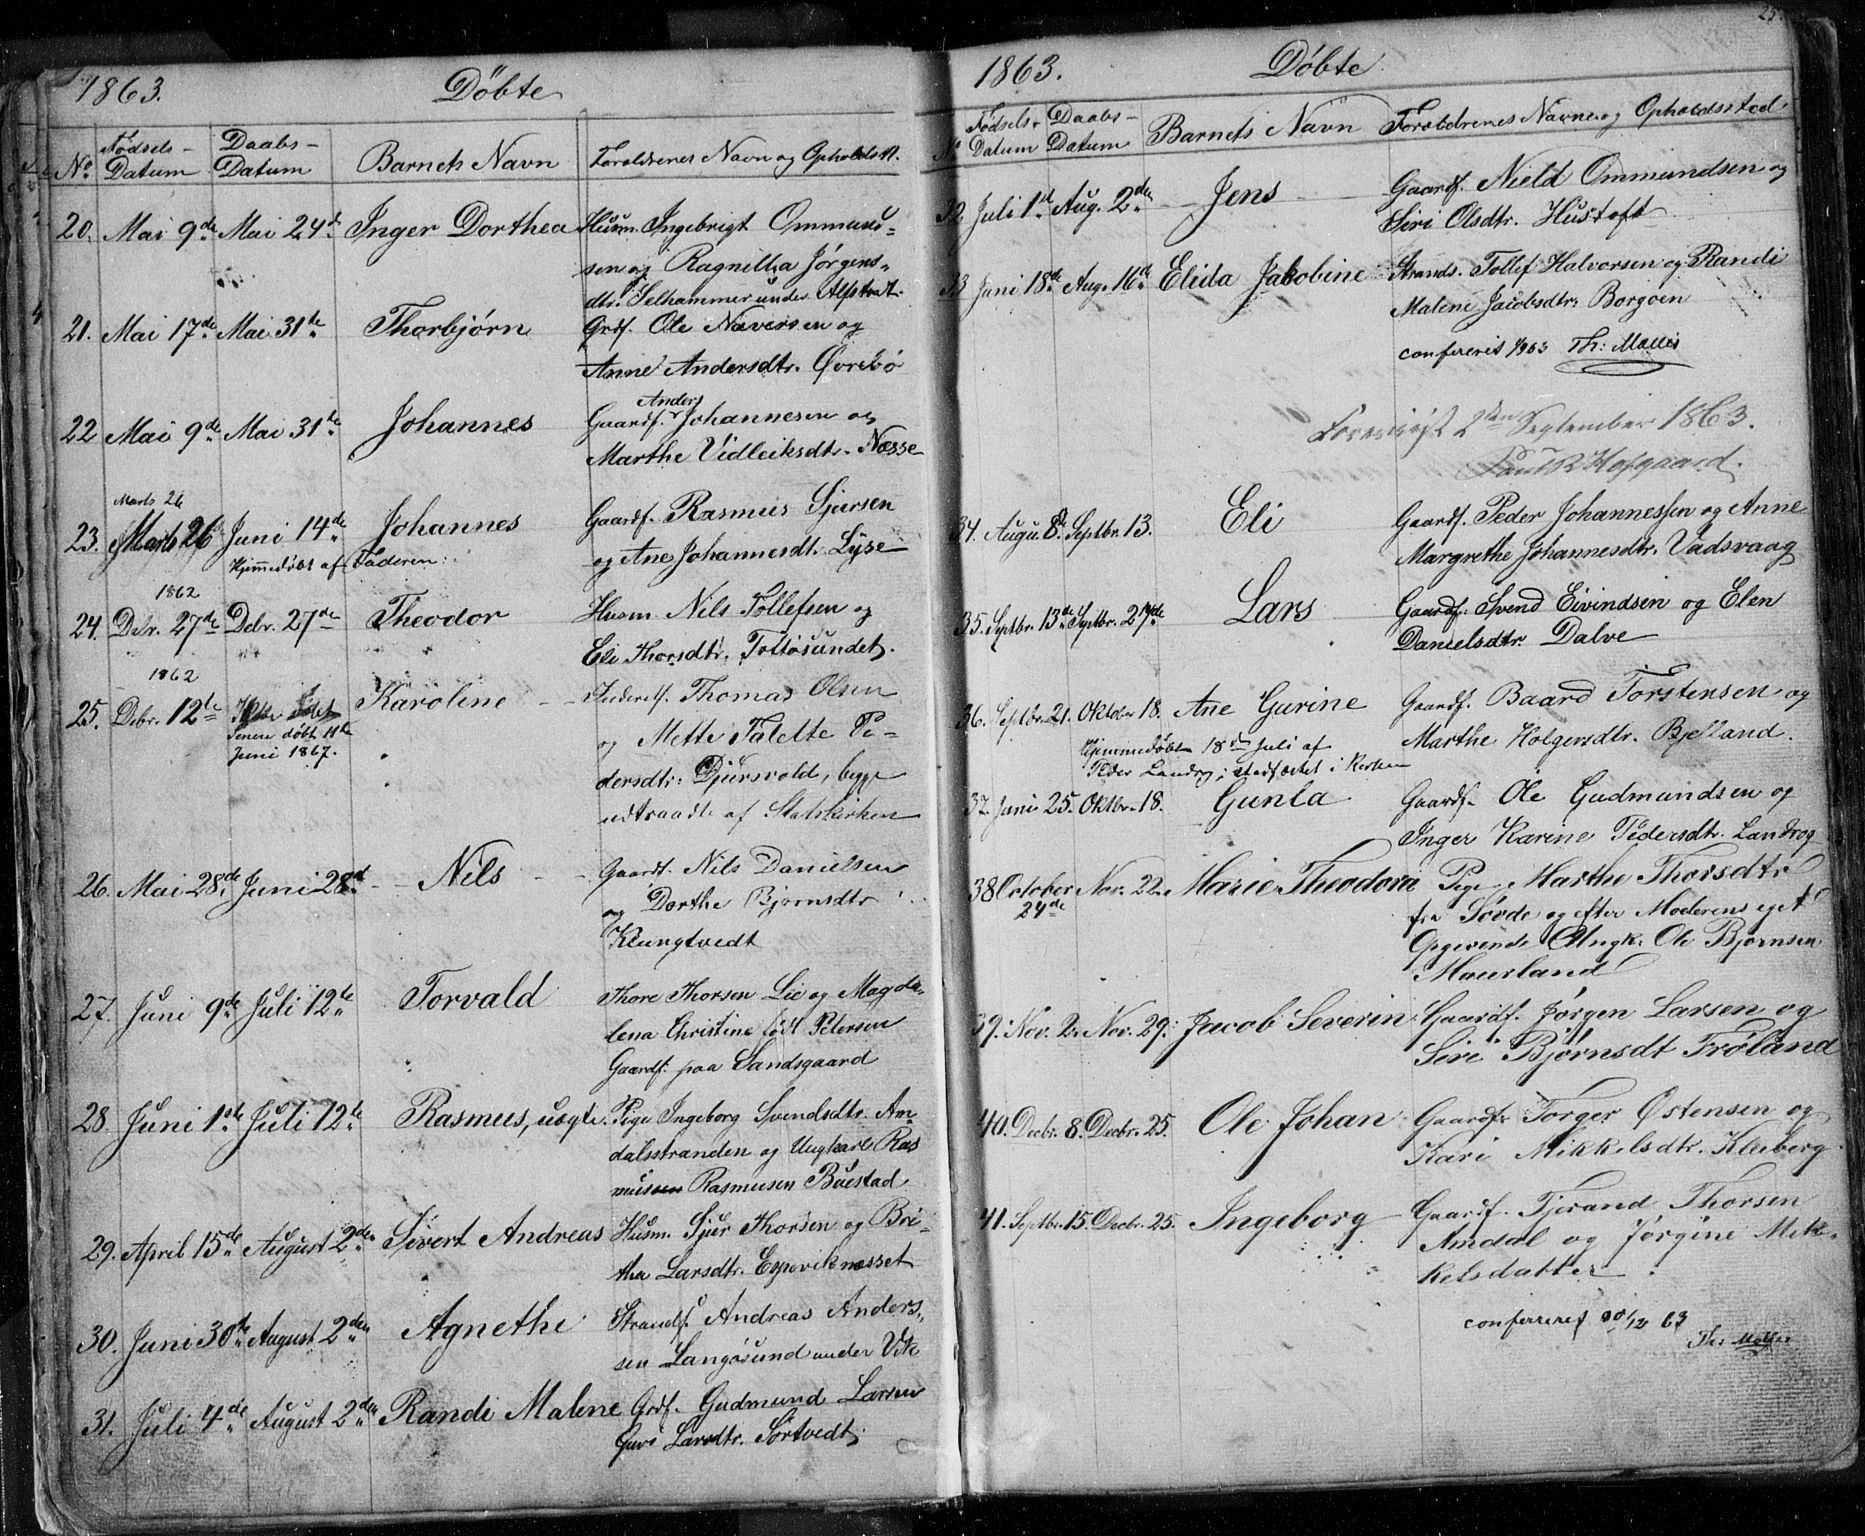 1863.
Döbte
No Fødsels-Datum Daabs-Datum Barnets Navn Forældrenes Navn og Opholdsst.
20. Mai 9de Mai 24de Inger Dorthea Husm. Ingebrigt Ommund-
sen og Ragnilla Jørgens-
dtr. Selhammer under Alfstat
21. Mai 17de Mai 31te Thorbjørn Grdf. Ole Næversen og
Anne Andersdtr. Øvrebø
22 Mai 9de Mai 31te Johannes Gaardf. Anders Johannesen og
Marthe Vidleiksdtr. Næsse
Marts 26
23. Marts 26 Juni 14de Johannes Gaardf. Rasmus Sjursen
Hjemmedøbt af Faderen. og Ane Johannesdt. Lyse
1862
24. Debr. 27de Debr. 27de Theodor Husm Nils Tollefsen og
Eli Thorsdtr. Toftøsundet.
1862
25. Debr. 12te Karoline Inderstf. Thomas Olsen
Senere døbt 11te
Juni 1867.
og Mette Talette Pe-
dersdtr: Djursvold, begge
udtraadte af Statskirken
26. Mai 28de Juni 28de Nils Gaardf. Nils Danielsen
og Dorthe Bjørnsdtr
Klungtvedt
27. Juni 9de Juli 12te Torvald Thore Thorsen Lie og Magda-
lena Christine født Petersen
Gaardf. paa Sandsgaard
28. Juni 1ste Juli 12te Rasmus, uægte. Pige Ingeborg Svendsdtr. Am
dalsstranden og Ungkarl Ras
mus Rasmusen Buestad
29. April 15de August 2den Sivert Andreas Husm. Sjur Thorsen og Bri-
tha Larsdtr. Espeviknesset
30. Juni 30te August 2den Agnethe Strandf. Andreas Anders-
sen Langøsund under Vik
31. Juli 4de August 2den Randi Malene Grdf. Gudmund Larsen
Guri Larsdtr. Sørtvedt.
25.
1863.
Döbte
No Fødsels-Datum Daabs-Datum Barnets Navn Forældrenes Navne og Opholdssted
32. Juli 1st Aug. 2den Jens Gaardf. Nield Ommundsen og
Siri Olsdtr. Hustoft
33 Juni 18de Aug. 16de Elida Jakobine Strands. Tollef Halvorsen og Randi
Malene Jacobsdtr. Borgøen
confereret 1863 Th: Møller
Foreviist 2den September 1863.
Paul R Hofgaard.
34. Augu. 8de Septbr. 13. Eli Gaardf. Peder Johannessen og Anne
Margrethe Johannesdtr. Vadsvaag
35. Septbr. 13de Septbr. 27de Lars Gaardf. Svend Eivindsen og Elen
Danielsdtr. Dalve
36. Septbr. 21. Oktober 18. Ane Gurine Gaardf. Baard Torstensen og
Marthe Holgersdtr. Bjelland.
Hjemmedøbt 18de Juli af
Peder Landrog; stadfæstet i Kirken
37. Juni 25. Oktbr. 18. Gunla Gaardf. Ole Gudmundsen og
Inger Karine Pedersdtr. Landrog
38 October 24de Nov. 22. Marie Theodora Pige Marthe Thorsdtr
fra Søvde og efter Moderens eget
Opgivende Ungk. Ole Bjørnsen
Mourland
39. Nov. 2. Nov. 29. Jacob Severin Gaardf. Jørgen Larsen og
Siri Bjørnsdt Frøland
40. Decbr. 8. Decbr. 25. Ole Johan Gaardf. Torger Østensen og
Kari Mikkelsdtr. Kleiberg
41. Septbr. 15. Decbr. 25. Ingeborg Gaardf. Tjerand Thorsen
Amdal og Jørgine Mik-
kelsdatter
confereret 30/12 63
Th: Møller